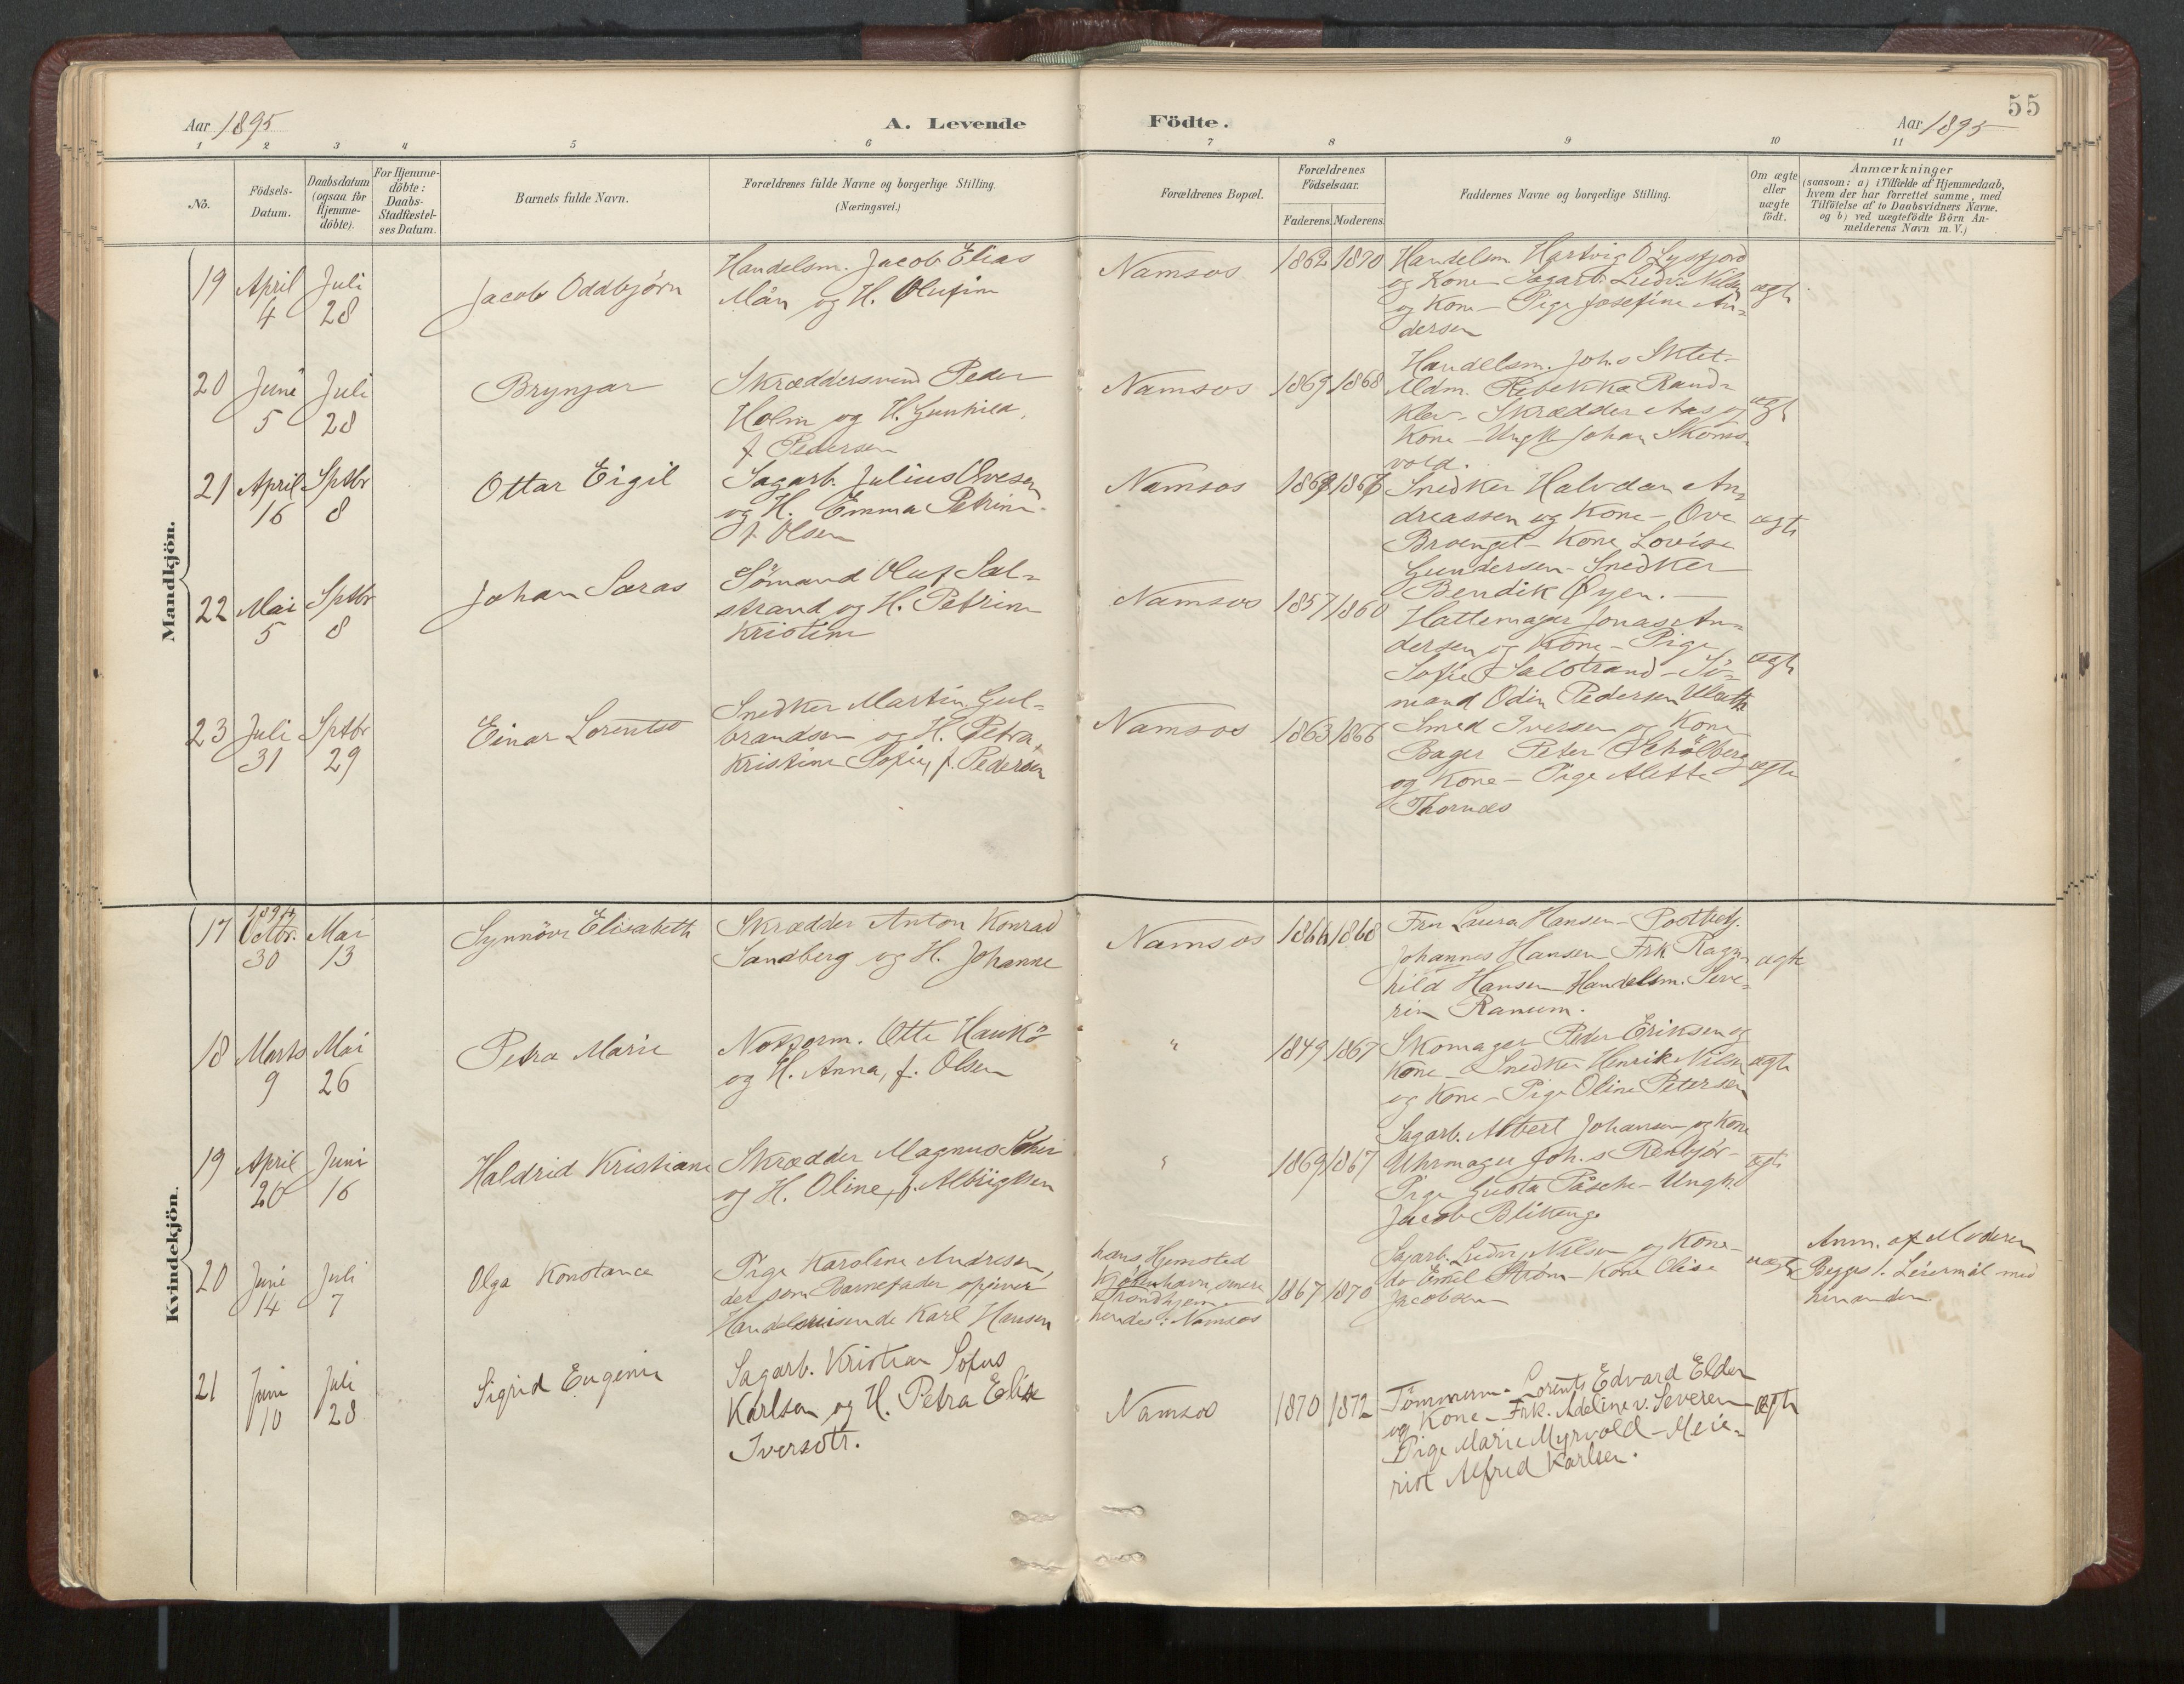 55
Aar 1895
A. Levende
Födte.
Aar 1895
1 2 3 4 5 6 7 8 9 10 11
No.
Födsels-
Datum.
Daabsdatum
(ogsaa for
Hjemme-
döbte).
For Hjemme-
döbte:
Daabs-
Stadfæstel-
ses Datum.
Barnets fulde Navn.
Forældrenes fulde Navne og borgerlige Stilling.
(Næringsvei.)
Forældrenes Bopæl.
Forældrenes
Födselsaar.
Faderens. Moderens.
Faddernes Navne og borgerlige Stilling.
Om ægte
eller
uægte
födt.
Anmærkninger
(saasom: a) i Tilfælde af Hjemmedaab,
hvem der har forrettet samme, med
Tilföielse af to Daabsvidners Navne,
og b) ved uægtefödte Börn An-
melderens Navn m. V.)
Mandkjön.
19
April
4
Juli
28
Jacob Oddbjørn
Handelsm. Jacob Elias
Mån og H. Olufine
Namsos
1862 1870
Handelsm Hartvig O Lysfjord
og Kone - Sagarb. Ludv. Nilsen
og Kone - Pige Josefine An-
dersen
ægte
20
Juni
5
Juli
28
Brynjar
Skræddersvend Peder
Holm og H. Gunhild,
f. Pedersen
Namsos
1869 1868
Handelsm. Johs Sklet-
Mdm. Rebekka Rand-
klev - Skrædder Aas og
Kone - Ungk Johan Skoms-
vold.
ægt
21
April
16
Sptbr
8
Ottar Eigil
Sagarb. Julius Ovesen
og H. Emma Petrine
f. Olsen
Namsos
Snedker Halvdan An-
dreassen og Kone - Ove
Broenget - Kone Lovise
Gundersen - Snedker
Bendik Øyen. -
ægte
22
Mai
5
Sptbr
8
Johan Saras
Sömand Oluf Sal-
strand og H. Petrine
Kristine
Namsos
1857 1860
Hattemager Jonas An-
dersen og Kone - Pige
Sofie Salstrand - Sö-
mand Odin Pedersen
ægte
23
Juli
31
Sptbr
29
Einar Lorents
Snedker Martin Gul-
brandsen og H. Petra
Kristine Sofie, f. Pedersen
Namsos
1863 1866
Smed Iversen og Kone
Bager Peter Schölberg
og Kone - Pige Aletta
Thornes
ægte
Kvindekjön.
17
1894
Octbr.
30
Mai
13
Synnöve Elisabeth
Skrædder Anton Konrad
Sandberg og H. Johanne
Namsos
1866 1868
Fru Laura Hansen - Postbef.
Johannes Hansen Frk Ragn-
hild Hansen Handelsm. Seve-
rin Ranum.
ægte
18
Marts
9
Mai
26
Petra Marie
Notform. Otte Haukö
og H. Anna, f. Olsen
"
1849 1867
Skomager Peder Eriksen og
Kone - Snedker Henrik Nilsen
og Kone - Pige Oline Petersen
ægte
19
April
20
Juni
16
Haldrid Kristiane
Skrædder Magnus
og H. Oline, f. Albrigtsen
"
1869 1867
Sagarb. Albert Johansen og Kone
Uhrmager Joh.s Renbjör-
Pige Gusta Påsche - Ungk.
Jacob Blikeng
ægte
20
Juni
14
Juli
7
Olga Konstance
Pige Karoline Andresen,
der som Barnefader opgiver
Handelsreisende Karl Hansen
hans Hjemsted
Kjöbenhavn, senere
Trondhjem -
hendes: Namsos
1867 1870
Sagarb. Ludv. Nilsen og Kone -
do Emil Ström - Kone Olise
Jacobsen
uægte
Anm. af Moderen
Begges 1. Leiermål med
hinanden
21
Juni
10
Juli
28
Sigrid Eugenie
Sagarb. Kristian Sofus
Karlsen og H. Petra Elise
Iversdtr.
Namsos
1870 1872
Tömmerm. Lorents Edvard Elden
og Kone - Frk. Adeline v. Severen -
Pige Marie Myrvold - Meie-
rist Alfred Karlsen.
ægte